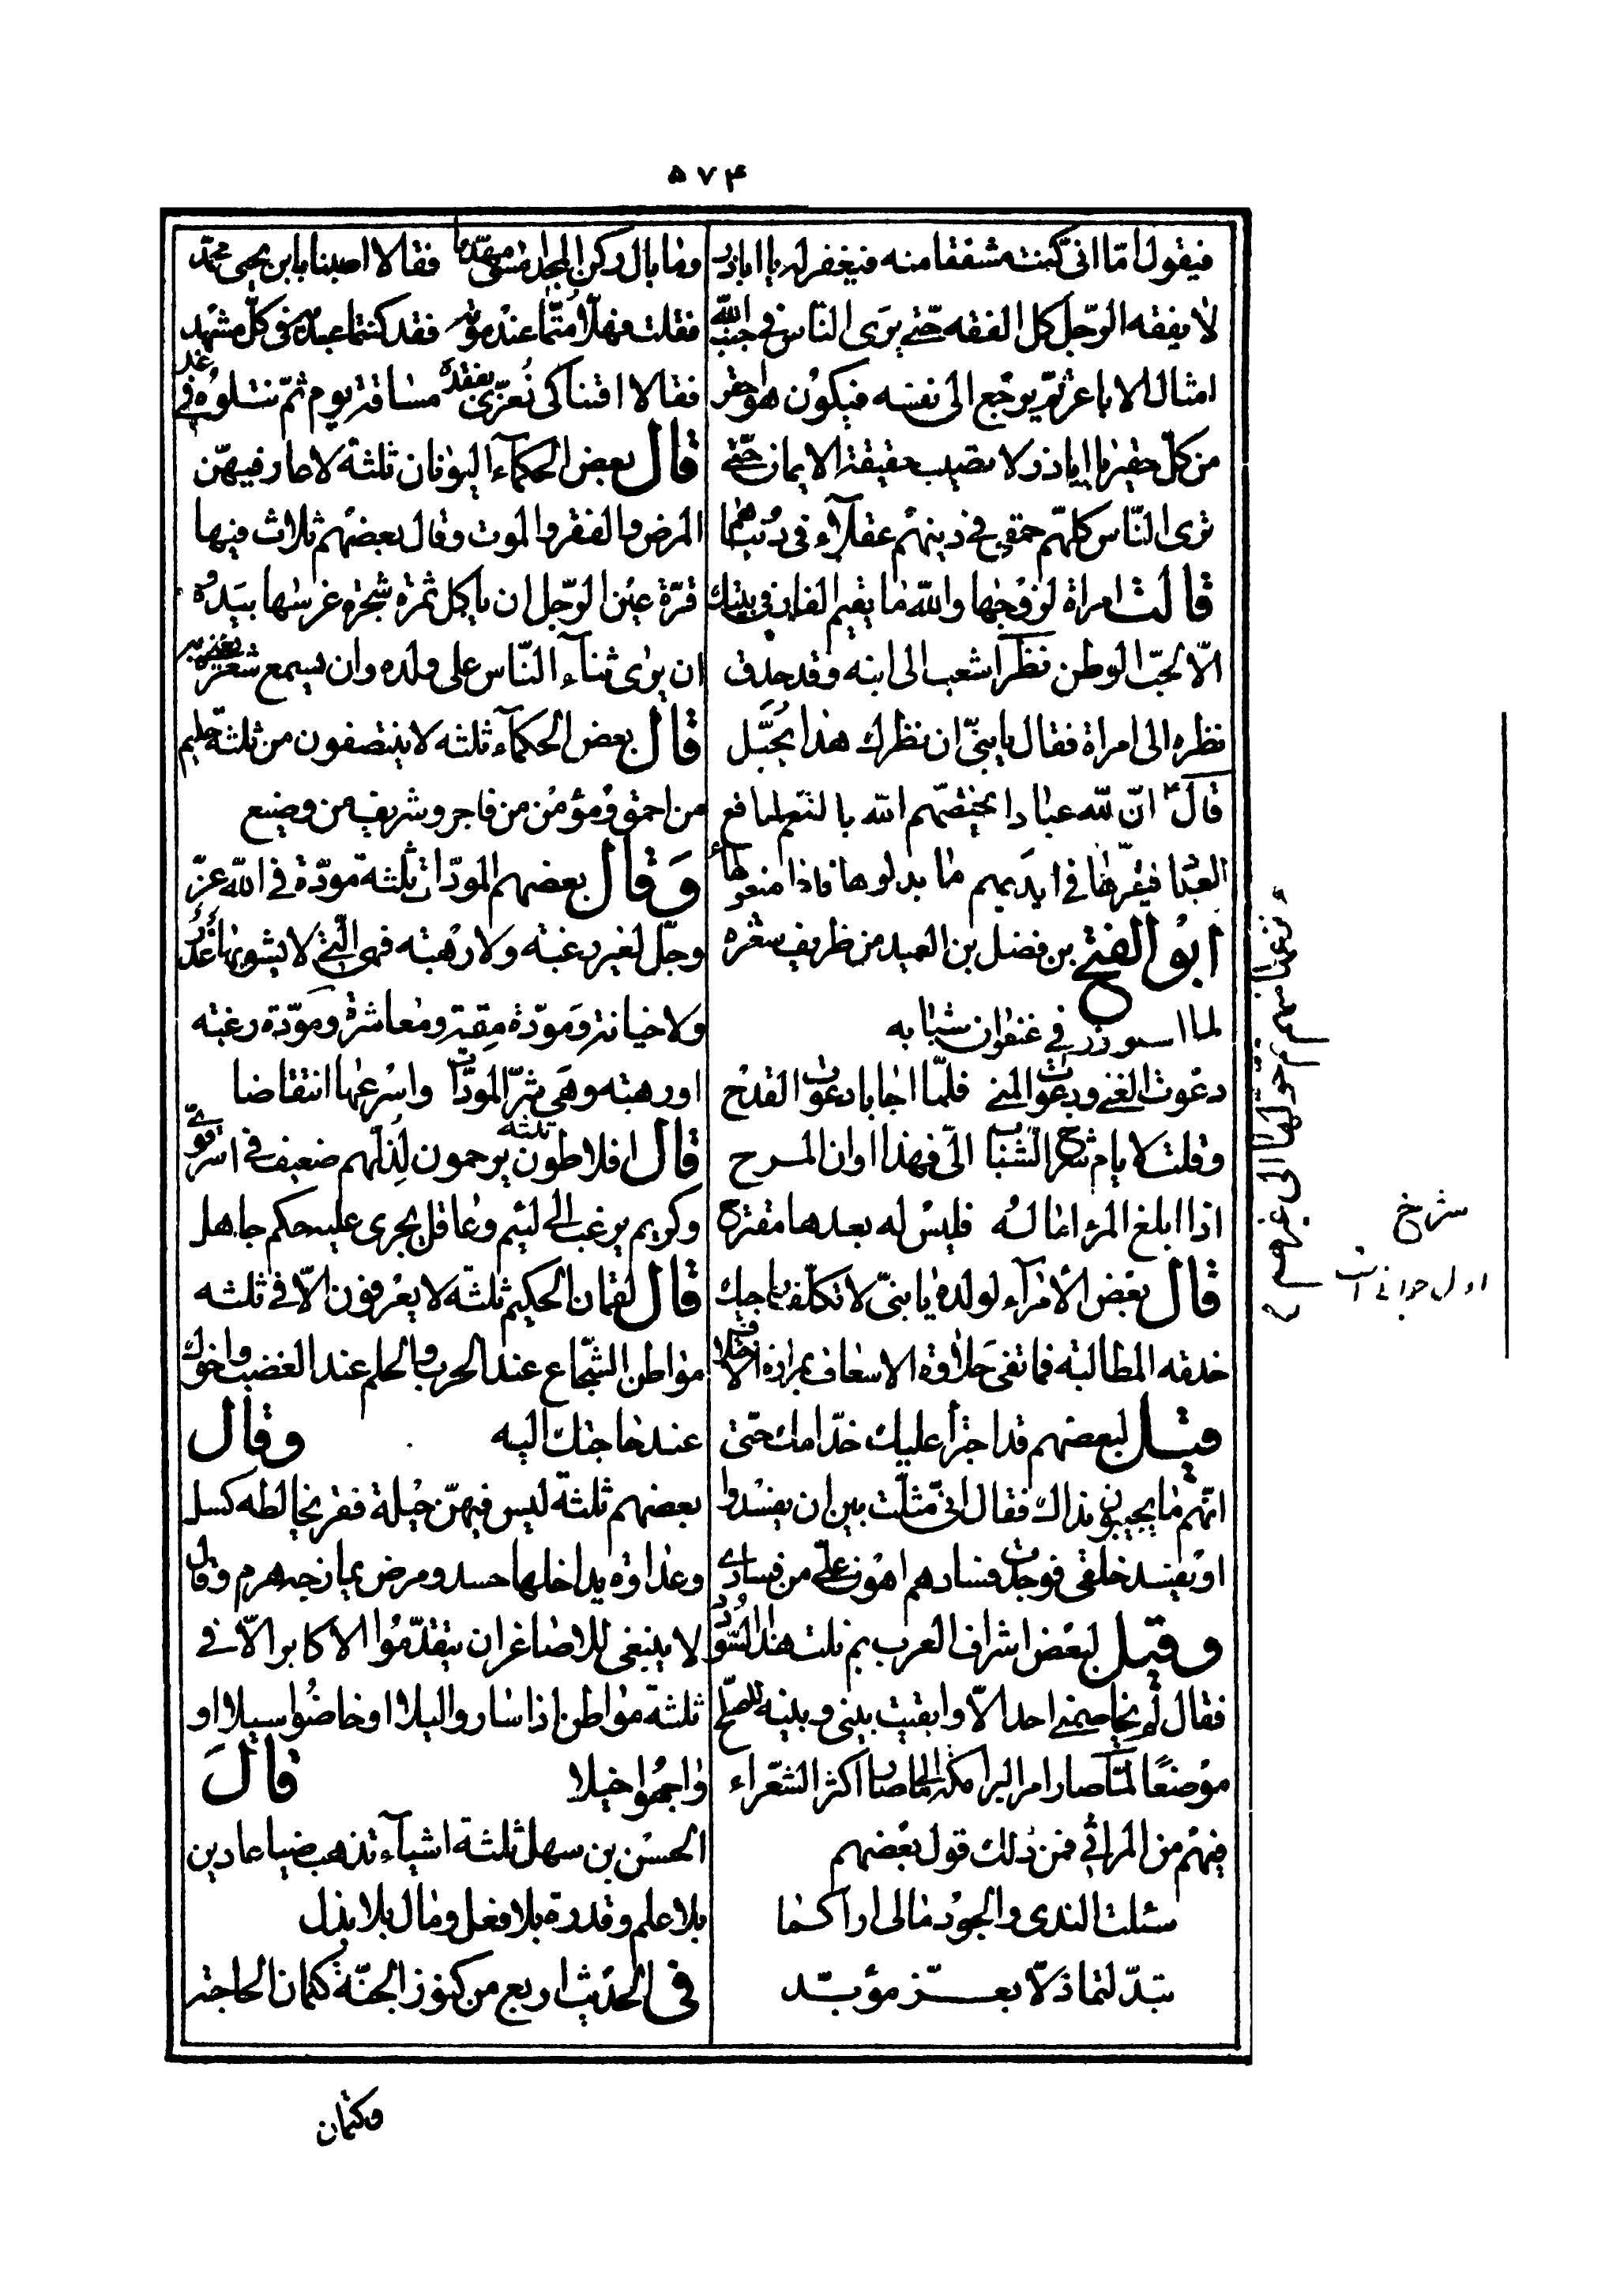 ۵۷۴
فيقول امّا انى كنت مشفقا منه فيغفر له يا اباذر
لا يفقه الرّجل كل الفقه حتّى يرى النّاس فى جنب اللّه
امثال الاباعر ثم يرجع الى نفسه فيكون هو احقر
من كلّ حقير يا اباذر لا تصيب حقيقة الايمان حتّى
ترى النّاس كلّهم حمقى فى دينهم عقلاء فى دنياهم
قالت امراة لزوجها واللّه ما يقيم الفار فى بيتك
الّا لحبّ الوطن نظر اشعب الى ابنه وقد حدق
نظره الى امراة فقال يا بنىّ ان نظرك هذا يحبّل
قال انّ للّه عبادا يختصّهم اللّه بالنّعم لمنافع
العباد فيقرّها فى ايديهم ما بذلوها فاذا منعوها
ابو الفتح بن فضل بن العميد من ظريف شعره
لما استوزر فى عنفوان شبابه
دعوت الغنى ودعوت المنى فلمّا اجابا دعوت القدح
وقلت لايام شرخ الشّباب الىّ فهذا اوان المرح
اذا ابلغ المرء اماله فليس له بعدها مقترح
قال بعض الامراء لولده يا بنىّ لا تكلّف
المطالبة فما تفى حلاوة الاسعاف بمرارة
قيل لبعضهم قد اجترأ عليك خدّامك حتّى
انّهم ما يجيبون نداك فقال انى مثلت بين ان يفسدوا
او يفسد خلقى فوجدت فسادهم اهون علىّ من فسادى
وقيل لبعض اشراف العرب بم نلت هذا السّودد
فقال لم يخاصمنى احد الّا وابقيت بينى وبينه للصّلح
موضعًا لمّا صار امر البرامكة الى ما صار اكثر الشّعراء
فيهم من المراثى فمن ذلك قول بعضهم
سئلت الندى والجود مالى اراكما
تبدّلتما ذلّا بعز مؤبّد
وما بال ركن المجد مهدّما فقالا اصبنا بابن يحيى محمّد
فقلت فهلّا متّما عند موته فقد كنتما عبديه فى كلّ مشهد
فقالا اقمنا كى نُعزّى بفقده مسافة يوم ثمّ نتلوه فى غد
قال بعض الحكماء اليونان ثلثة لا عار فيهنّ
المرض والفقر والموت وقال بعضهم ثلاث فيها
قرّة عين الرّجل ان يأكل ثمرة شجرة غرسها بيده و
ان يرى ثناء النّاس على ولده وان يسمع شعره
قال بعض الحكماء ثلثه لا ينتصفون من ثلثة حليم
من احمق ومؤمن من فاجر وشريف من وضيع
وقال بعضهم المودّات ثلثة مودّة فى اللّه عزّ
وجلّ لغير رغبته ولا رهبته فهى الّتى لا يشوبها غدر
ولا خيانة ومودّة مقة ومعاشرة ومودّة رغبته
او رهبته وهى شرّ المودّات واسرعها انتقاضا
قال افلاطون ثلثة يرحمون لذلّهم ضعيف فى اسر قوىّ
وكريم يرغب الى لئيم وعاقل يجرى عليه حكم جاهل
قال لقمان الحكيم ثلثة لا يعرفون الّا فى ثلثه
مواطن الشّجاع عند الحرب والحلم عند الغضب واخوك
عند حاجتك اليه وقال
بعضهم ثلثة ليس فيهنّ حيلة فقر يخالطه كسل
وعداوة يداخلها حسد ومرض يمازجه هرم وقال
لا ينبغى للاصاغر ان يتقدّموا الاكابر الّا فى
ثلثة مواطن اذا ساروا ليلا او خاضوا سيلا او
واجهوا خيلا قال
الحسن بن سهل ثلثة اشياء تذهب ضياعا دين
بلا علم وقدرة بلا فعل ومال بلا بذل
فى الحديث اربع من كنوز الجنّة كتمان الحاجة
وكتمان
نزعها منهم ثم حولها الى غيرهم
شرخ
اول جوانى است